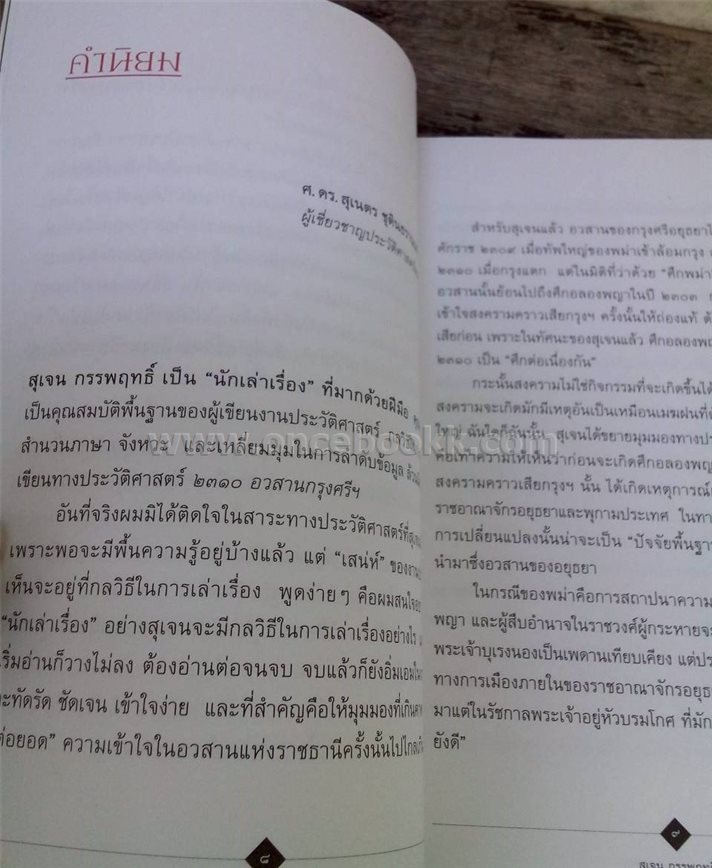 คำนิยม
ศ. ดร. สุเนตร ชุตินธรานนท์
ผู้เชี่ยวชาญประวัติศาสตร์
สุเจน กรรพฤทธิ์ เป็น “นักเล่าเรื่อง” ที่มากด้วยฝีมือ
เป็นคุณสมบัติพื้นฐานของผู้เขียนงานประวัติศาสตร์
สำนวนภาษา จังหวะ และเหลี่ยมมุมในการลำดับข้อมูล
เขียนทางประวัติศาสตร์ ๒๓๑๐ อวสานกรุงศรีฯ
อันที่จริงผมมิได้ติดใจในสาระทางประวัติศาสตร์ที่
เพราะพอจะมีพื้นความรู้อยู่บ้างแล้ว แต่ “เสน่ห์” ของ
เห็นจะอยู่ที่กลวิธีในการเล่าเรื่อง พูดง่ายๆ คือผมสนใจ
“นักเล่าเรื่อง” อย่างสุเจนจะมีกลวิธีในการเล่าเรื่องอย่างไร
เริ่มอ่านก็วางไม่ลง ต้องอ่านต่อจนจบ จบแล้วก็ยังอิ่มเอม
ะทัดรัด ชัดเจน เข้าใจง่าย และที่สำคัญคือให้มุมมองที่
ต่อยอด” ความเข้าใจในอวสานแห่งราชธานีครั้งนั้นไปไกล
๘
สำหรับสุเจนแล้ว อวสานของกรุงศรีอยุธยา
ศักราช ๒๓๐๙ เมื่อทัพใหญ่ของพม่าเข้าล้อมกรุง
๒๓๑๐ เมื่อกรุงแตก แต่ในมิติที่ว่าด้วย “ศึกพม่า
อวสานนั้นย้อนไปถึงศึกอลองพญาในปี ๒๓๐๓
เข้าใจสงครามคราวเสียกรุงฯ ครั้งนั้นให้ถ่องแท้
เสียก่อน เพราะในทัศนะของสุเจนแล้ว ศึกอลองพญ
๒๓๑๐ เป็น “ศึกต่อเนื่องกัน”
กระนั้นสงครามไม่ใช่กิจกรรมที่จะเกิดขึ้นได้
สงครามจะเกิดมักมีเหตุอันเป็นเหมือนเมฆฝนที่
ใหญ่ ฉันใดก็ฉันนั้น สุเจนได้ขยายมุมมองทางป
ต่อเท้าความให้เห็นว่าก่อนจะเกิดศึกอลองพญ
สงครามคราวเสียกรุงฯ นั้น ได้เกิดเหตุการณ์
ราชอาณาจักรอยุธยาและพุกามประเทศ ในทา
การเปลี่ยนแปลงนั้นน่าจะเป็น “ปัจจัยพื้นฐาน
นำมาซึ่งอวสานของอยุธยา
ในกรณีของพม่าคือการสถาปนาความ
พญา และผู้สืบอำนาจในราชวงศ์ผู้กระหายจะ
พระเจ้าบุเรงนองเป็นเพดานเทียบเคียง แต่ป
ทางการเมืองภายในของราชอาณาจักรอยุธ
มาแต่ในรัชกาลพระเจ้าอยู่หัวบรมโกศ ที่มัก
ยังดี”
๙
สุเจน กรรพฤทธิ์